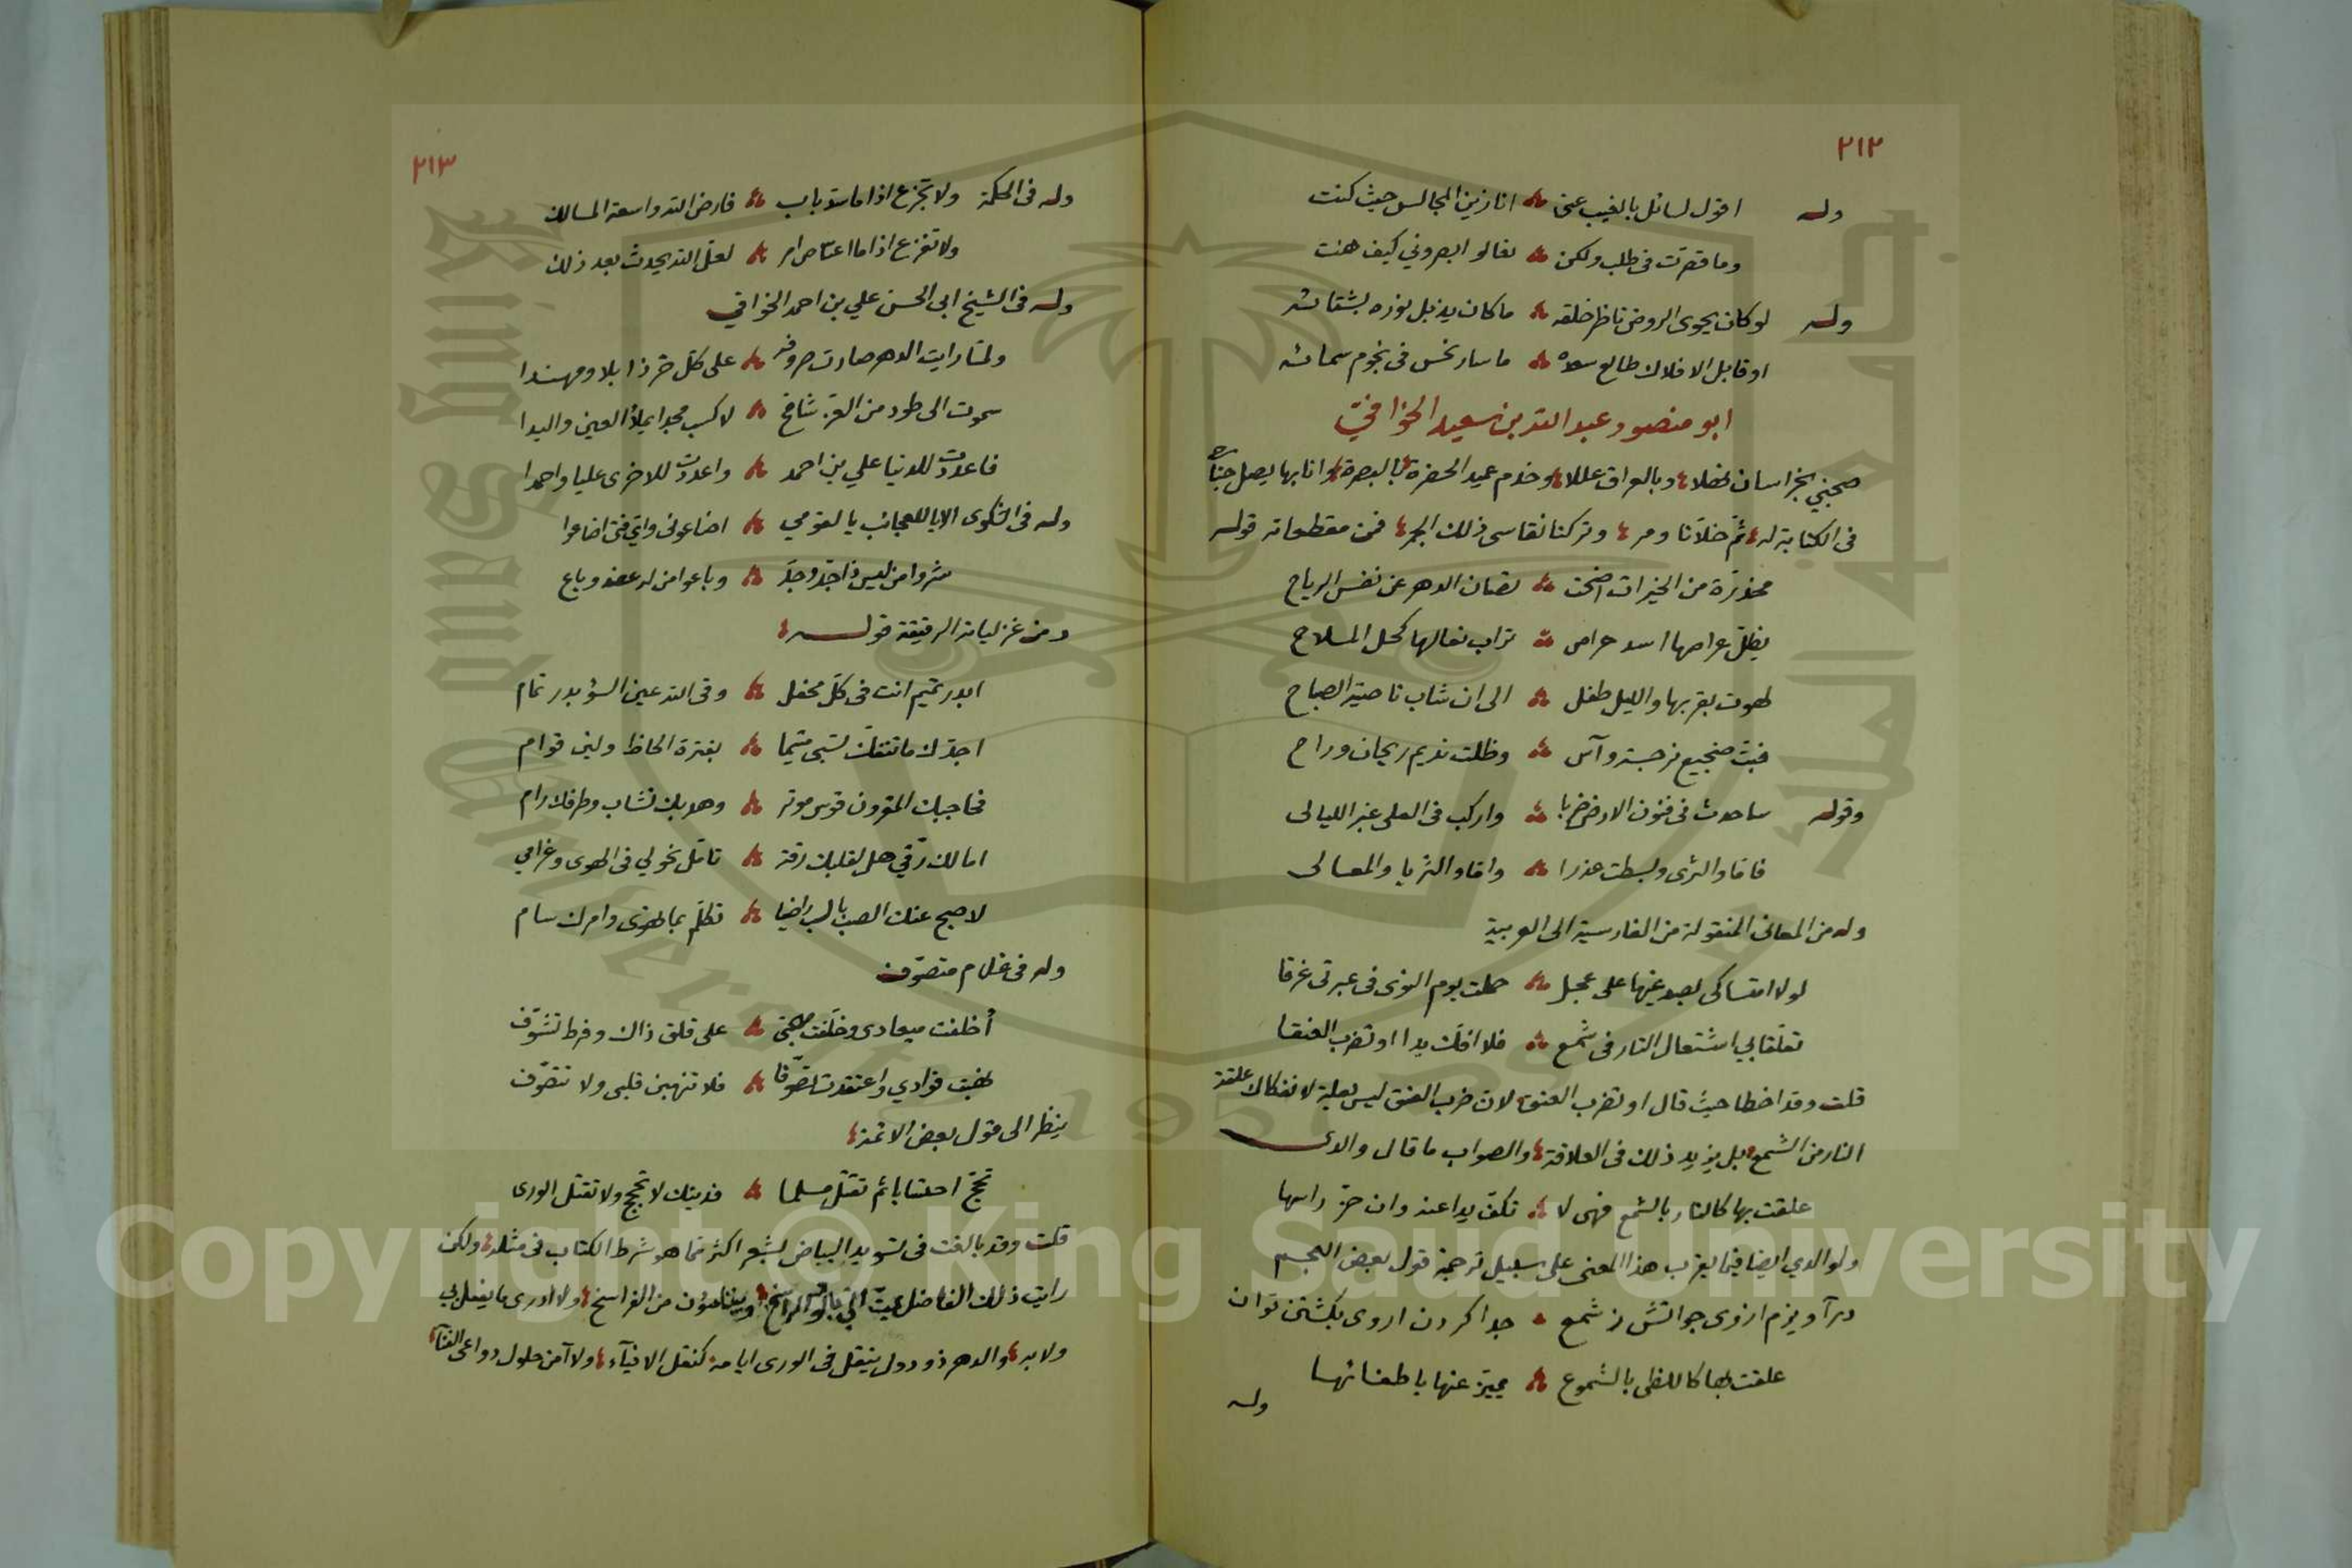 ٢١٢
وله اقول لسائل بالغيب عني انا زين المجالس حيث كنت
وما قصرت فى طلب ولكن تعالوا ابصروني كيف هنت
وله لو كان يحوى الروض ناظر خلقه ما كان يذبل نوره بشتائه
او قابل الافلاك طالع سعده ما سار نحس فى نجوم سمائه
ابو منصور عبد الله بن سعيد الخوافيّ
صحبني بخراسان وبالعراق عللا وخدم عميد الحضرة بالبصرة وانا بها يصل جناحه
فى الكتابة له ثم خلّانا ومر وتركنا نقاسى ذلك الجمر فمن مقطعاته قوله
مخدّرة من الخيرات اضحت تصان الدهر عن نفس الرياح
يظلّ عراصها اسد حراص تراب نعالها كحل الملاح
لهوت بقربها والليل طفل الى ان شاب ناصية الصباح
فبتّ ضجيع نرجسة وآس وظلت نديم ريحان وراح
وقوله ساحدث فى فنون الارض ضربا واركب فى العلى غبر الليالى
فاما والثرى وبسطت عذرا واما والثريا والمعالى
وله من المعانى المنقولة من الفارسية الى العربية
لولا امتساكى بصدغيها على عجل حملت يوم النوى فى عبرتى غرقا
تعلّقا بي اشتعال النار فى شمع فلا افك يدا او تضرب العنقا
قلت وقد اخطا حيث قال او تضرب العنق لان ضرب العنق ليس بعلة لانفكاك علقة
النار من الشمع بل يزيد ذلك فى العلاقة والصواب ما قال والدى
علقت بها كالنار بالشمع فهى لا تكفّ يدا عنه وان حزّ راسها
ولوالدي ايضا فيما يقرب هذا المعنى على سبيل ترجمة قول بعض العجم
درآويزم ازوى جو اتش ز شمع جدا كردن ازوى بكشتن توان
علقت بها كاللظى بالشموع يميّز عنها باطفائها
وله
٢١٣
وله فى الحكمة ولا تجزع اذا ما سدّ باب فارض الله واسعة المسالك
ولا تفزع اذا ما اعتاص امر لعلّ الله يحدث بعد ذلك
وله فى الشيخ ابى الحسن علي بن احمد الخوافي
ولمّا رايت الدهر صارت صروفه على كلّ حرّ ذابلا ومهندا
سموت الى طود من العزّ شامخ لاكسب مجدا يملأ العين واليدا
فاعددت للدنيا علي بن احمد واعددت للاخرى عليا واحمدا
وله فى الشكوى الا يا للعجائب يا لقومي اضاعونى واىّ فتى اضاعوا
شروا من ليس ذا جدّ وجدّ وباعوا من له عضد وباع
ومن غزلياته الرقيقة قوله
ابدر تميم انت فى كلّ محفل وقى الله عين السوء بدر تمام
اجدّك ما تنفكّ تسبى متيما بفترة الحاظ ولين قوام
فحاجبك المقرون قوس موتر وهدبك نشاب وطرفك رام
اما لك رقّي هل لقلبك رقة تامّل نحولي فى الهوى وغرامي
لاصبح عنك الصب بالسب راضيا تكلّم بما تهوى وامرك سام
وله فى غلام متصوّف
أخلفت ميعادى وخلّفت مهجتى على قلق ذاك وفرط تشوّف
نهبت فؤادي واعتقدت تصوّفا فلا تنهبن قلبى ولا تتصوّف
ينظر الى قول بعض الائمة
تحجّ احتسابا ثم تقتل مسلما فديتك لا تحجج ولا تقتل الورى
قلت وقد بالغت فى تسويد البياض بشعر اكثر ممّا هو شرط الكتاب فى مثله ولكن
رايت ذلك الفاضل من الفراسخ ولا ادرى ما يفعل بي
ولا به والدهر ذو دول ينقل فى الورى ايامه كنقل الافيآء ولا آمن حلول دواعى الفنآء